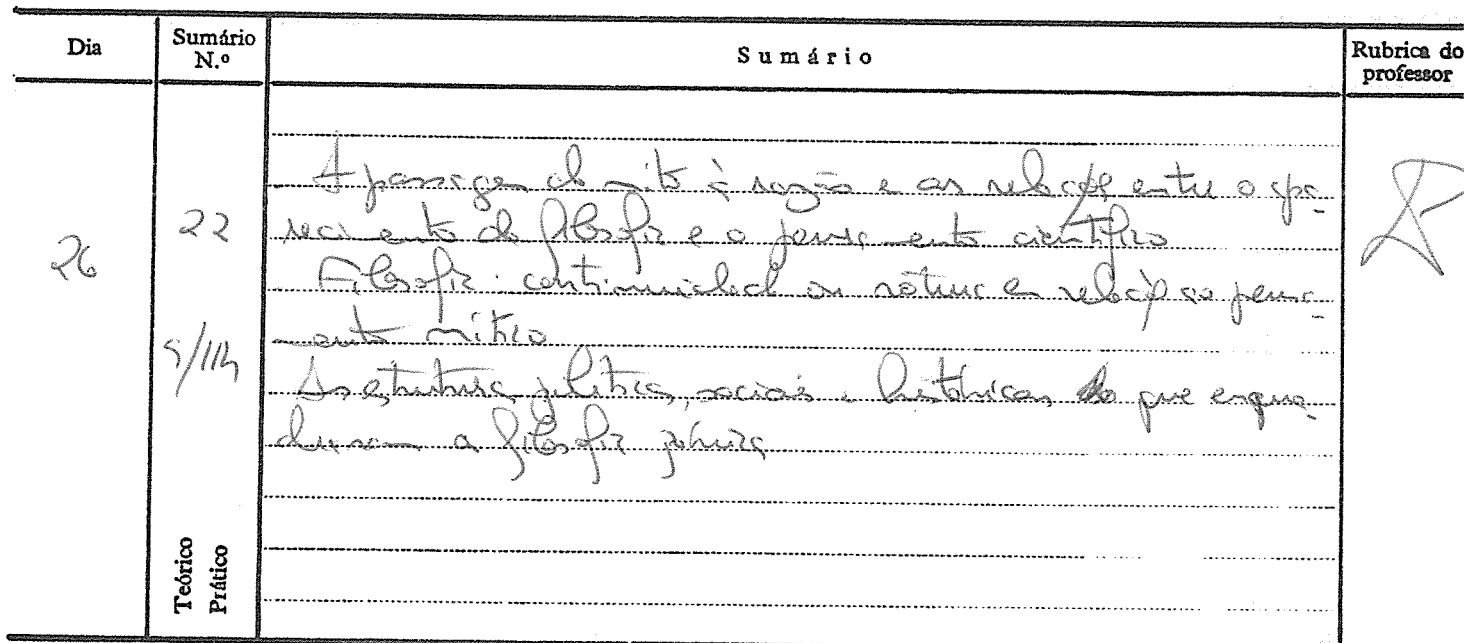 Dia
Sumário N.º
Sumário
Rubrica do professor
26
22
9/11h
A passagem do mito à razão e as relações entre o apa-
recimento da filosofia e o pensamento científico
Filosofia: continuidade ou rotura em relação ao pensa-
mento mítico
As estruturas políticas, sociais e históricas que enqua-
dram a filosofia jónica
Teórico
Prático